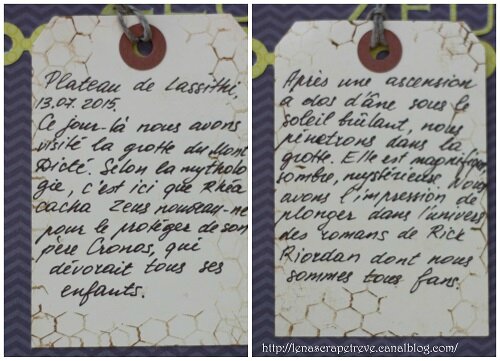 Plateau de Lassithi,
13.07.2015.
Ce jour-là nous avons
visité la grotte du Mont
Dicté. Selon la mytholo-
gie, c'est ici que Rhéa
cacha Zeus nouveau-né
pour le protéger de son
père Cronos, qui
dévorait tous ses
enfants.
Après une ascension
à dos d'âne sous le
soleil brûlant, nous
pénétrons dans la
grotte. Elle est magnifique,
sombre, mystérieuse. Nous
avons l'impression de
plonger dans l'univers
des romans de Rick
Riordan dont nous
sommes tous fans.
http://lenascrapetreve.canalblog.com/